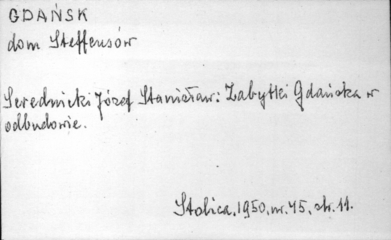 GDAŃSK
dom Steffensów
Serednicki Józef Stanisław: Zabytki Gdańska w
odbudowie.
Stolica, 1950, nr. 45, str. 11.